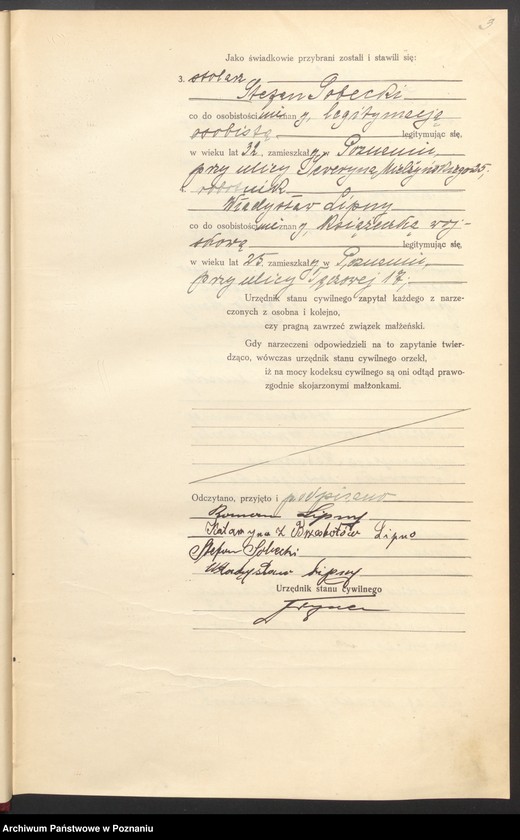 3
Jako świadkowie przybrani zostali i stawili się:
3. stolarz
Stefan Sobecki
co do osobistości nieznany, legitymacją
osobistą legitymując się,
w wieku lat 32, zamieszkały w Poznaniu,
przy ulicy Seweryna Mielżyńskiego 25,
4. robotnik
Władysław Lipny
co do osobistości nieznany, książeczką woj-
skową legitymując się,
w wieku lat 25, zamieszkały w Poznaniu,
przy ulicy 17,
Urzędnik stanu cywilnego zapytał każdego z narze-
czonych z osobna i kolejno,
czy pragną zawrzeć związek małżeński.
Gdy narzeczeni odpowiedzieli na to zapytanie twier-
dząco, wówczas urzędnik stanu cywilnego orzekł,
iż na mocy kodeksu cywilnego są oni odtąd prawo-
zgodnie skojarzonymi małżonkami.
Odczytano, przyjęto i podpisano
Roman Lipny
Katarzyna z Lipno
Stefan Sobecki
Władysław Lipny
Urzędnik stanu cywilnego
Archiwum Państwowe w Poznaniu